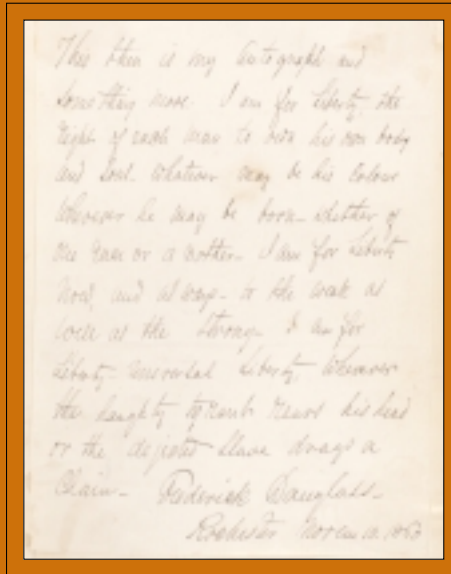 This then is my Autograph and
something more. I am for Liberty, the
right of each man to own his own body
and soul. whatever may be his Colour
wherever he may be born– whether of
one race or another– I am for Liberty
now, and always– to the weak as
well as the strong– I am for
Liberty– Universal Liberty, wherever
the haughty tyrant rears his head
or the dejected slave drags a
Chain– Frederick Douglass–
Rochester Novem